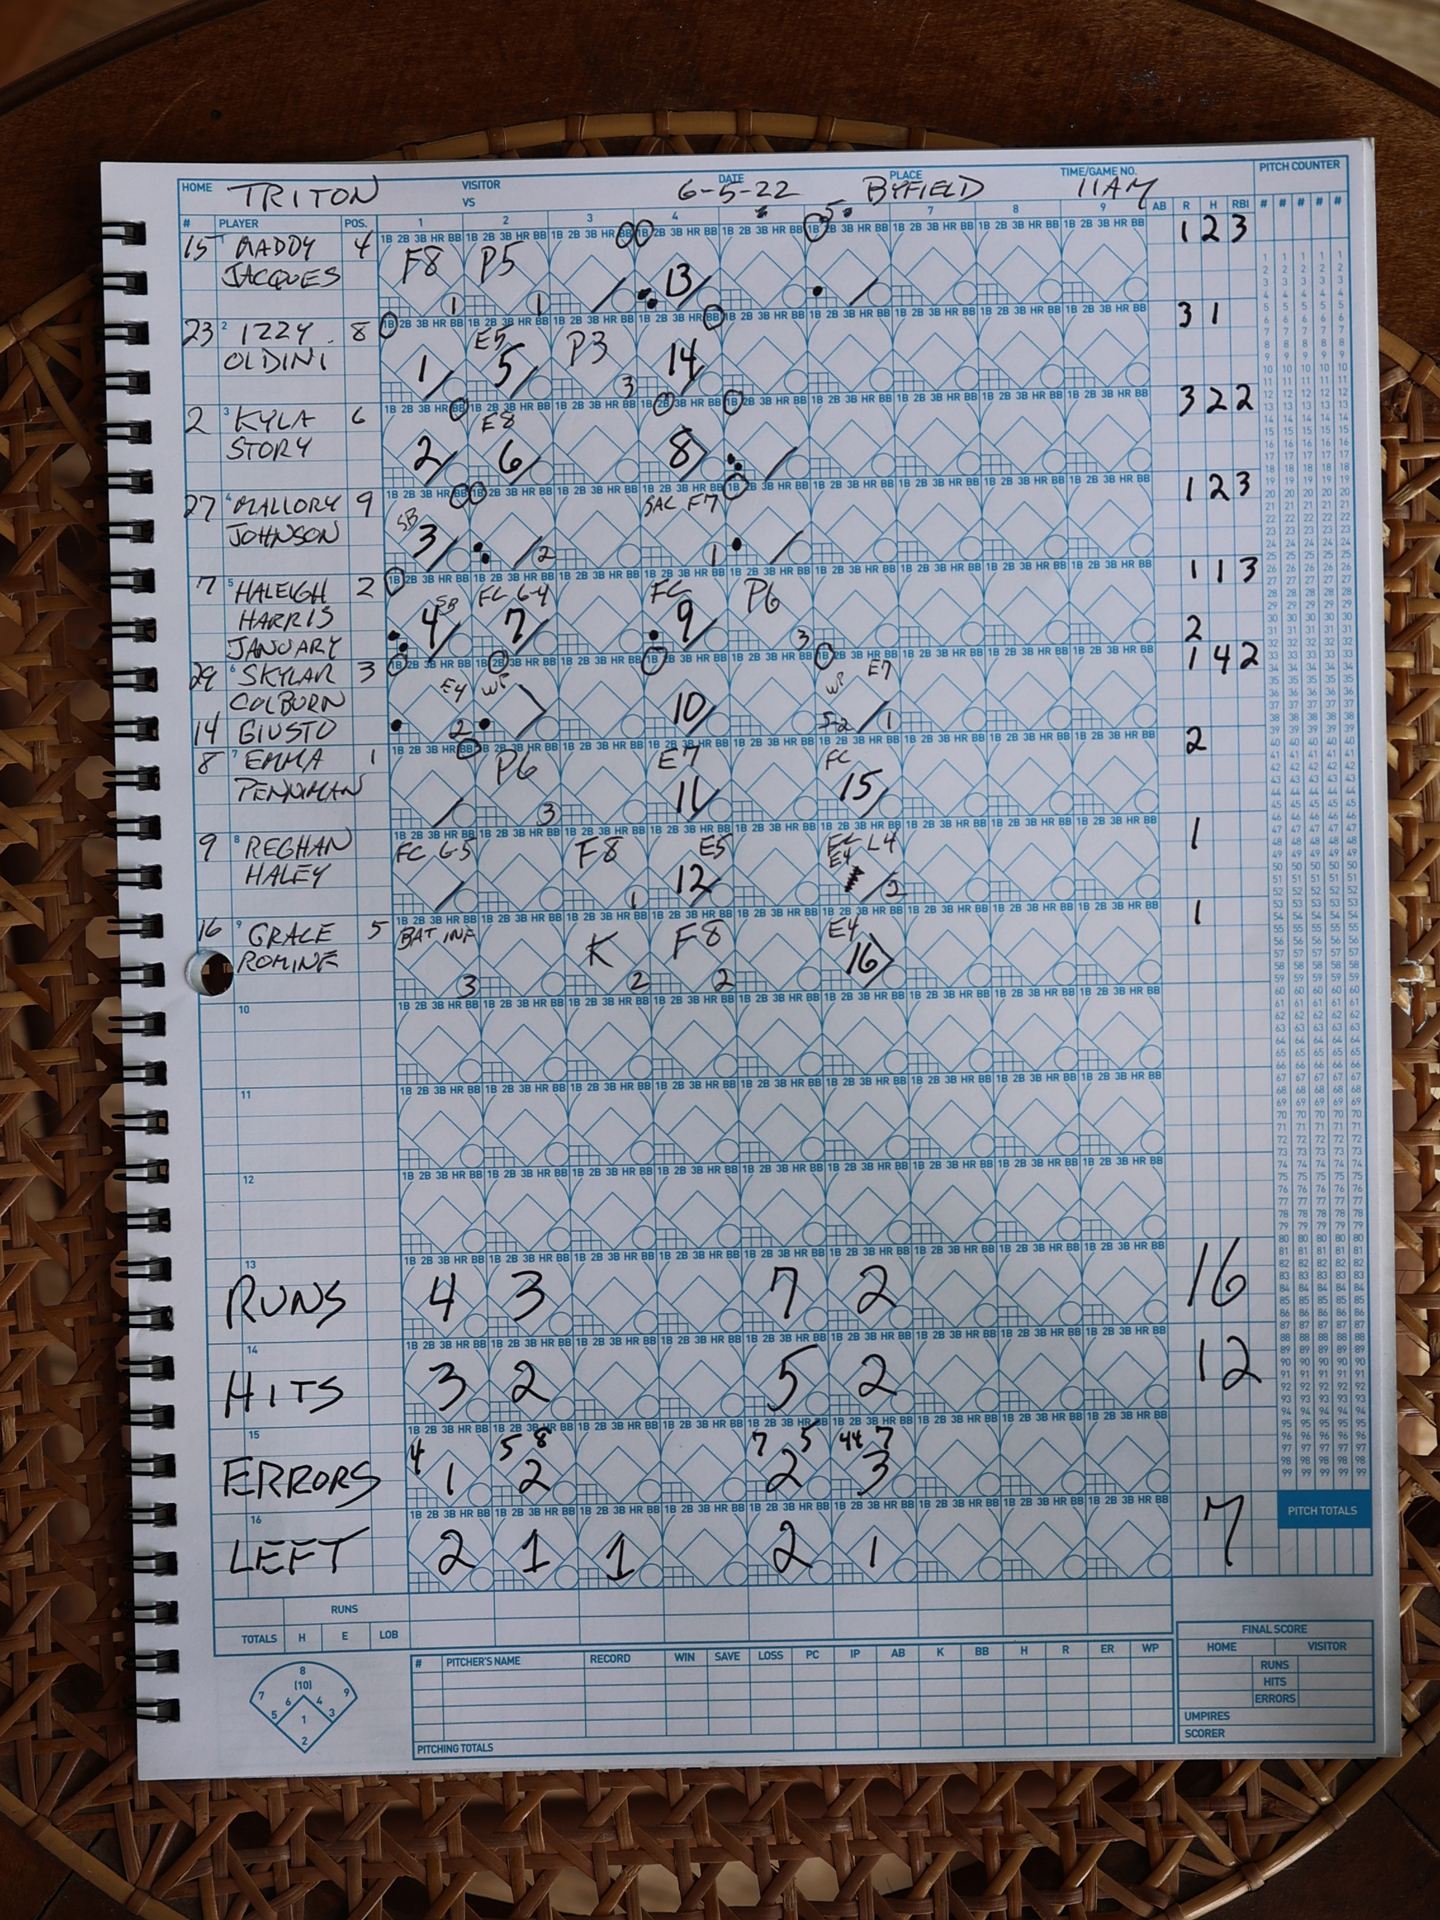 HOME TRITON VISITOR VS DATE 6-5-22 PLACE BYFIELD TIME/GAME NO. 11AM PITCH COUNTER
# PLAYER POS. 1 2 3 4 5 7 8 9 AB R H RBI # # # # #
15 MADDY JACQUES 4 F8 1 P5 1 13 1 2 3
23 2 IZZY OLDINI 8 1 E5 5 P3 3 14 3 1
2 3 KYLA STORY 6 2 E8 6 8 3 2 2
27 4 MALLORY JOHNSON 9 SB 3 2 SAC F7 1 1 2 3
7 5 HALEIGH HARRIS 2 4 SB FC 6-4 7 FC 9 P6 3 1 1 3
JANUARY 2
29 6 SKYLAR COLBURN 3 E4 2 WP 10 WP E7 5-2 1 1 4 2
14 GIUSTO
8 7 EMMA PENNIMAN 1 P6 3 E7 11 FC 15 2
9 8 REGHAN HALEY FC 6-5 F8 1 E5 12 FC L4 E4 2 1
16 9 GRACE ROMINE 5 BAT INF 3 K 2 F8 2 E4 16 1
10
11
12
13 RUNS 4 3 7 2 16
14 HITS 3 2 5 2 12
15 ERRORS 4 1 5 8 2 7 5 2 44 7 3
16 LEFT 2 1 1 2 1 7
PITCH TOTALS
RUNS
TOTALS H E LOB
# PITCHER'S NAME RECORD WIN SAVE LOSS PC IP AB K BB H R ER WP
PITCHING TOTALS
FINAL SCORE
HOME VISITOR
RUNS
HITS
ERRORS
UMPIRES
SCORER
8
(10)
7 6 4 9
5 1 3
2